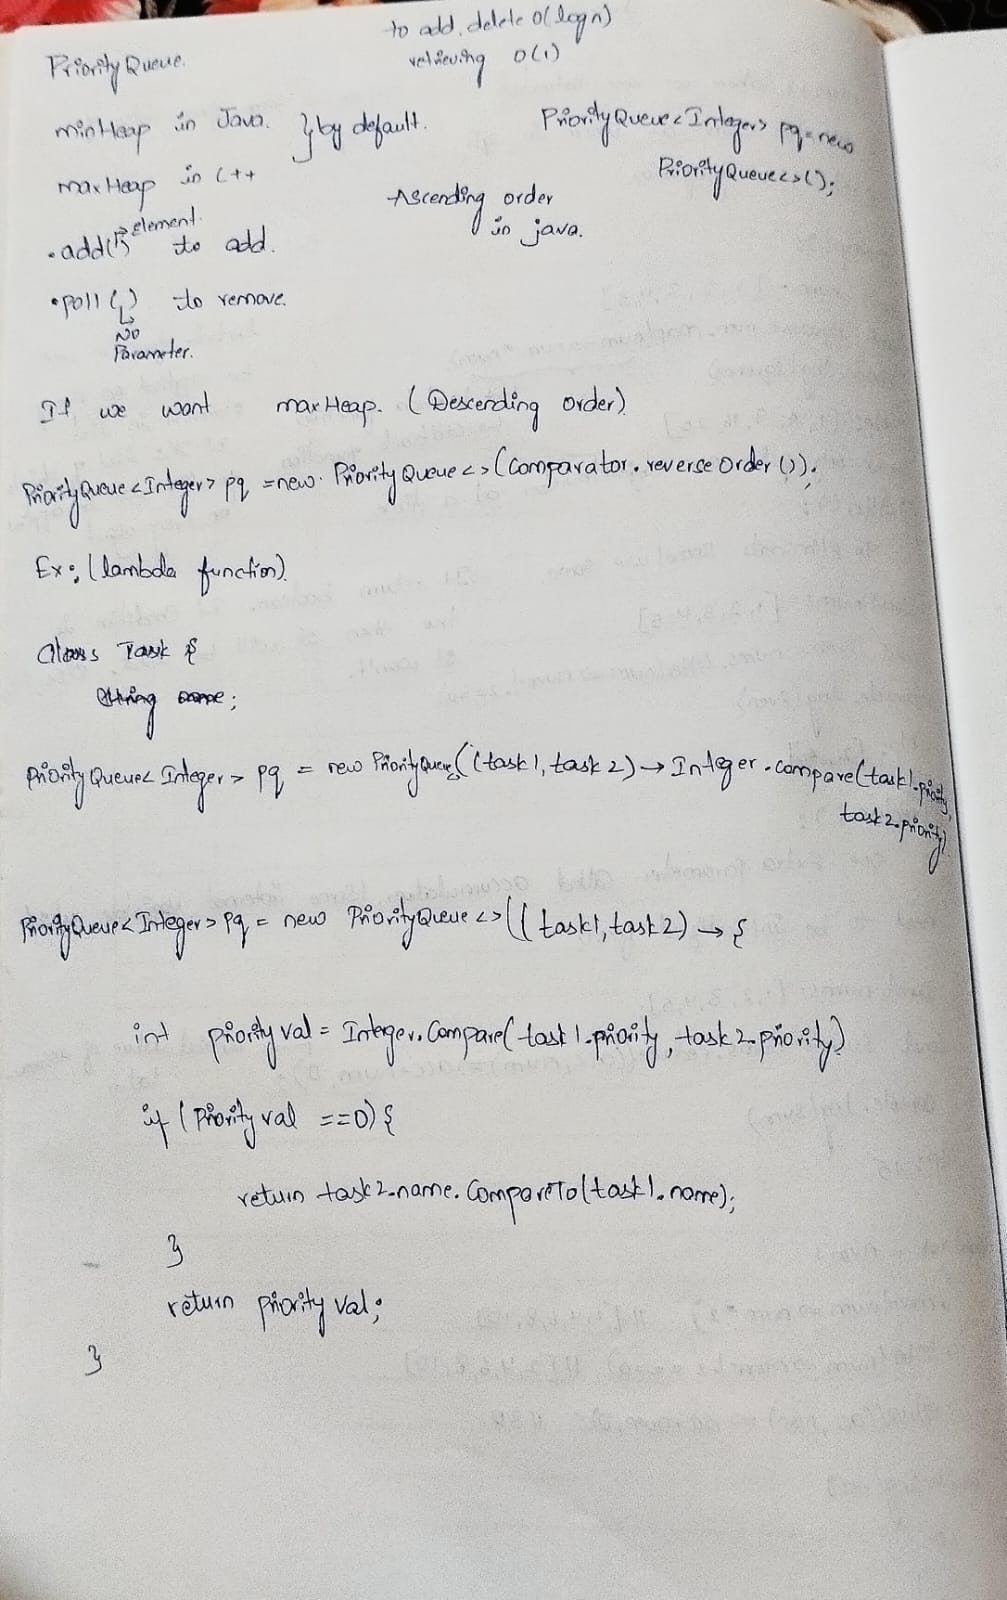 to add, delete O(logn)
Priority Queue.
retrieving O(1)
minHeap in Java. } by default.
PriorityQueue<Integer> pq = new
PriorityQueue<>();
maxHeap in C++
Ascending order
in java.
element.
.add(1) to add.
.poll() to remove.
No
Parameter.
If we want maxHeap. (Descending Order)
PriorityQueue<Integer> pq = new PriorityQueue<>(Comparator.reverseOrder());
Ex: (lambda function)
Class Task {
String name;
PriorityQueue<Integer> pq = new PriorityQueue((task1, task2) → Integer.compare(task1.priority,
task2.priority)
PriorityQueue<Integer> pq = new PriorityQueue<>((task1, task2) → {
int priorityval = Integer.Compare(task1.priority, task2.priority)
if (Priorityval ==0) {
return task2.name.CompareTo(task1.name);
}
return priorityval;
}